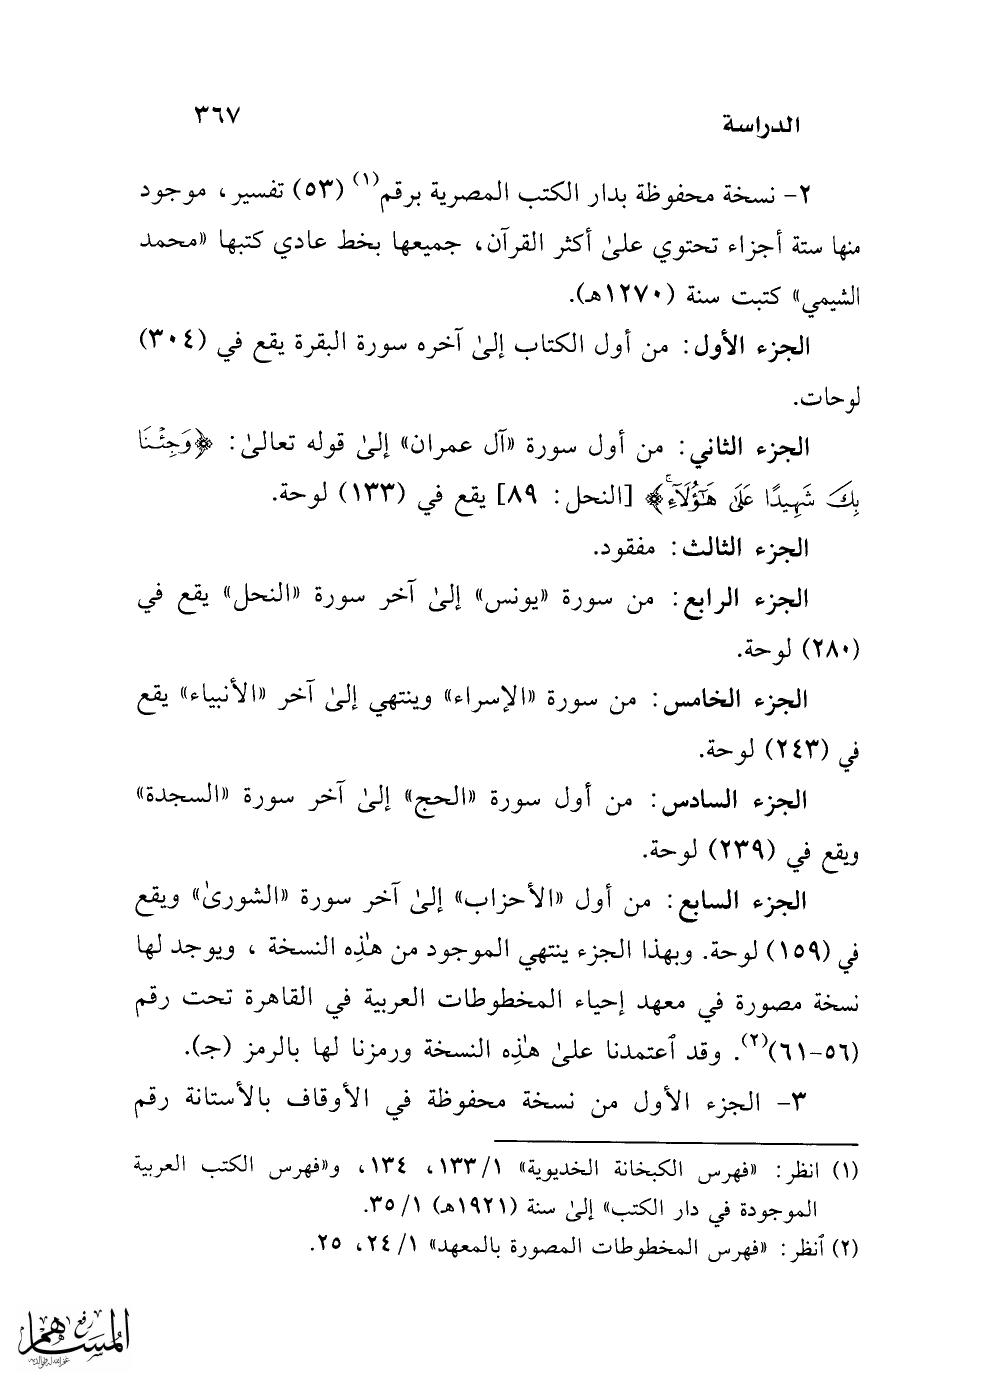 الدراسة
٣٦٧
٢- نسخة محفوظة بدار الكتب المصرية برقم(١) (٥٣) تفسير، موجود
منها ستة أجزاء تحتوي علىٰ أكثر القرآن، جميعها بخط عادي كتبها «محمد
الشيمي» كتبت سنة (١٢٧٠هـ).
الجزء الأول: من أول الكتاب إلىٰ آخره سورة البقرة يقع في (٣٠٤)
لوحات.
الجزء الثاني: من أول سورة «آل عمران» إلىٰ قوله تعالىٰ: ﴿وَجِئْنَا
بِكَ شَهِيدًا عَلَىٰ هَٰٓؤُلَآءِۚ﴾ [النحل: ٨٩] يقع في (١٣٣) لوحة.
الجزء الثالث: مفقود.
الجزء الرابع: من سورة «يونس» إلىٰ آخر سورة «النحل» يقع في
(٢٨٠) لوحة.
الجزء الخامس: من سورة «الإسراء» وينتهي إلىٰ آخر «الأنبياء» يقع
في (٢٤٣) لوحة.
الجزء السادس: من أول سورة «الحج» إلىٰ آخر سورة «السجدة»
ويقع في (٢٣٩) لوحة.
الجزء السابع: من أول «الأحزاب» إلىٰ آخر سورة «الشورىٰ» ويقع
في (١٥٩) لوحة. وبهذا الجزء ينتهي الموجود من هـٰذِه النسخة ، ويوجد لها
نسخة مصورة في معهد إحياء المخطوطات العربية في القاهرة تحت رقم
(٥٦-٦١)(٢). وقد ٱعتمدنا علىٰ هـٰذِه النسخة ورمزنا لها بالرمز (جـ).
٣- الجزء الأول من نسخة محفوظة في الأوقاف بالأستانة رقم
(١) انظر: «فهرس الكبخانة الخديوية» ١/ ١٣٣، ١٣٤، و«فهرس الكتب العربية
الموجودة في دار الكتب» إلىٰ سنة (١٩٢١هـ) ١/ ٣٥.
(٢) ٱنظر: «فهرس المخطوطات المصورة بالمعهد» ١/ ٢٤، ٢٥.
رفع
المساهم